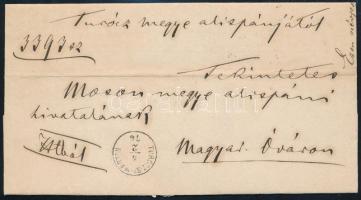 Turócz megye alispánjától
3393 sz
Tekintetes
Moson megye alispáni
hivatalának
Magyar. Óváron